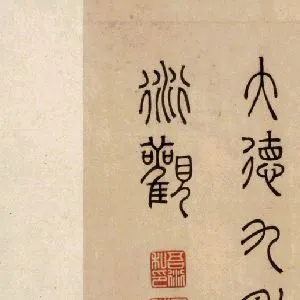 大德九
衍觀